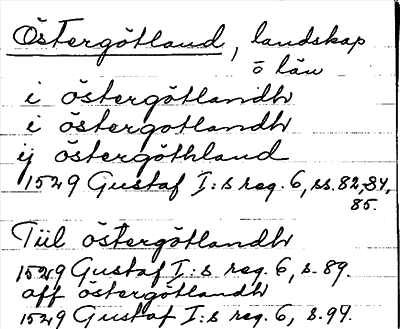 Östergötland, landskap
o län
i östergötlandh
i östergotlandh
ij östergöthland
1529 Gustaf I:s reg. 6, ss. 82, 84,
85.
Tiil östergötlandh
1529 Gustaf I:s reg. 6, s. 89.
aff östergötlandh
1529 Gustaf I:s reg. 6, s. 97.